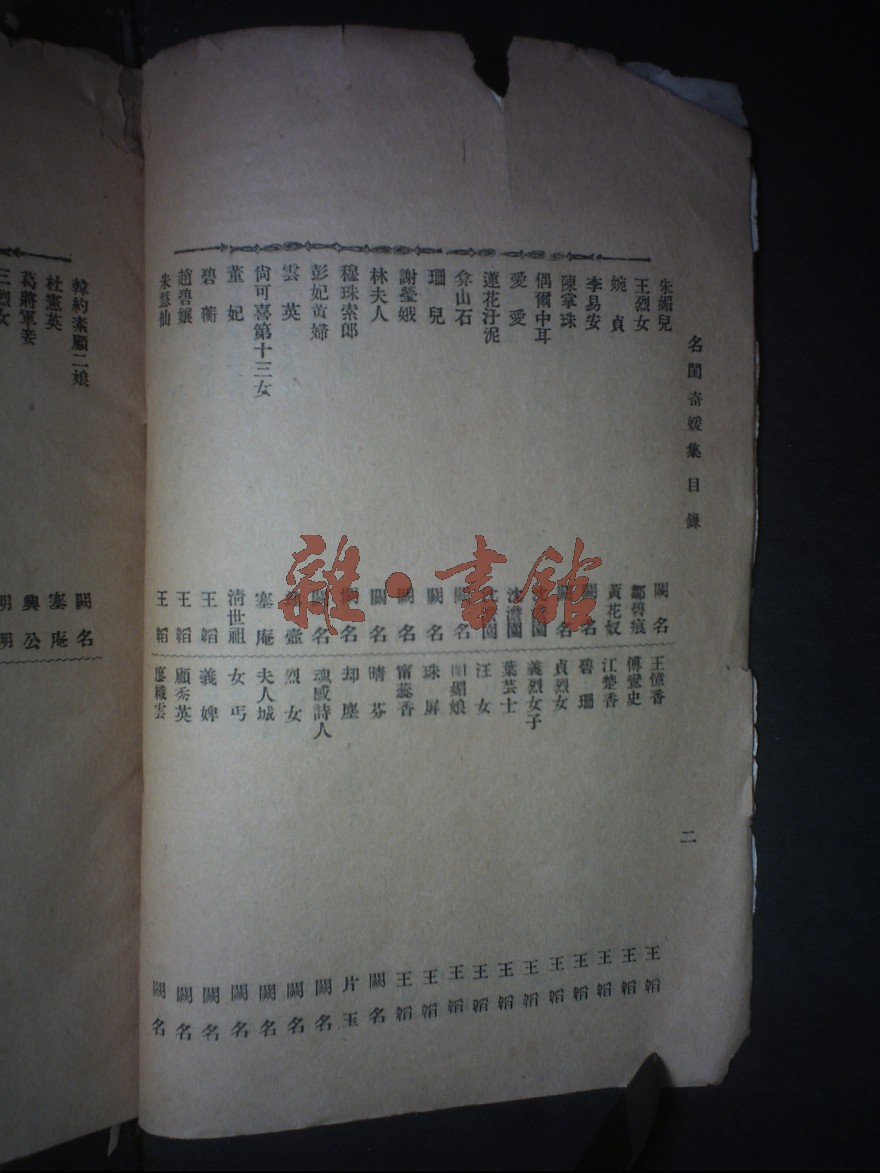 名閨奇媛集目錄 二
朱媚兒 闕名
王烈女 鄒碧痕
婉貞 黃花奴
李易安 闕名
陳掌珠 闕名
偶爾中耳 園
愛愛 沈澹園
蓮花汙泥 園
弇山石 闕名
珊兒 闕名
謝瑩娥 闕名
林夫人 闕名
穆珠索郎 闕名
彭妃黃婦 闕名
雲英 壺
尙可喜第十三女 塞庵
董妃 清世祖
碧蘅 王韜
趙碧孃 王韜
朱慧仙 王韜
王憶香 王韜
傅鸞史 王韜
江楚香 王韜
碧珊 王韜
貞烈女 王韜
義烈女子 王韜
葉芸士 王韜
汪女 王韜
媚娘 王韜
珠屏 王韜
甯蕊香 王韜
晴芬 闕名
却塵 片玉
魂感詩人 闕名
烈女 闕名
夫人城 闕名
女丐 闕名
義婢 闕名
顧秀英 闕名
廖織雲 闕名
韓約素顧二娘 闕名
杜憲英 塞庵
葛將軍妾 興公
三烈女 明明
雜·書館